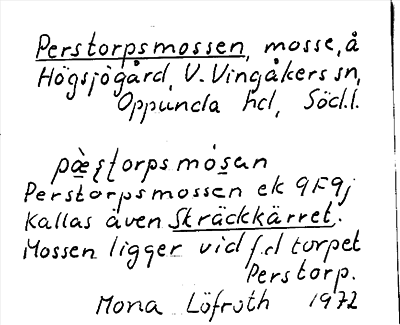 Perstorpsmossen, mosse, å
Högsjögård, V. Vingåkers sn,
Oppunda hd, Södl.
pæ̀ʂʈorps mósɐn
Perstorpsmossen ek 9F9j
Kallas även Skräckkärret.
Mossen ligger vid f.d torpet
Perstorp.
Mona Löfroth 1972